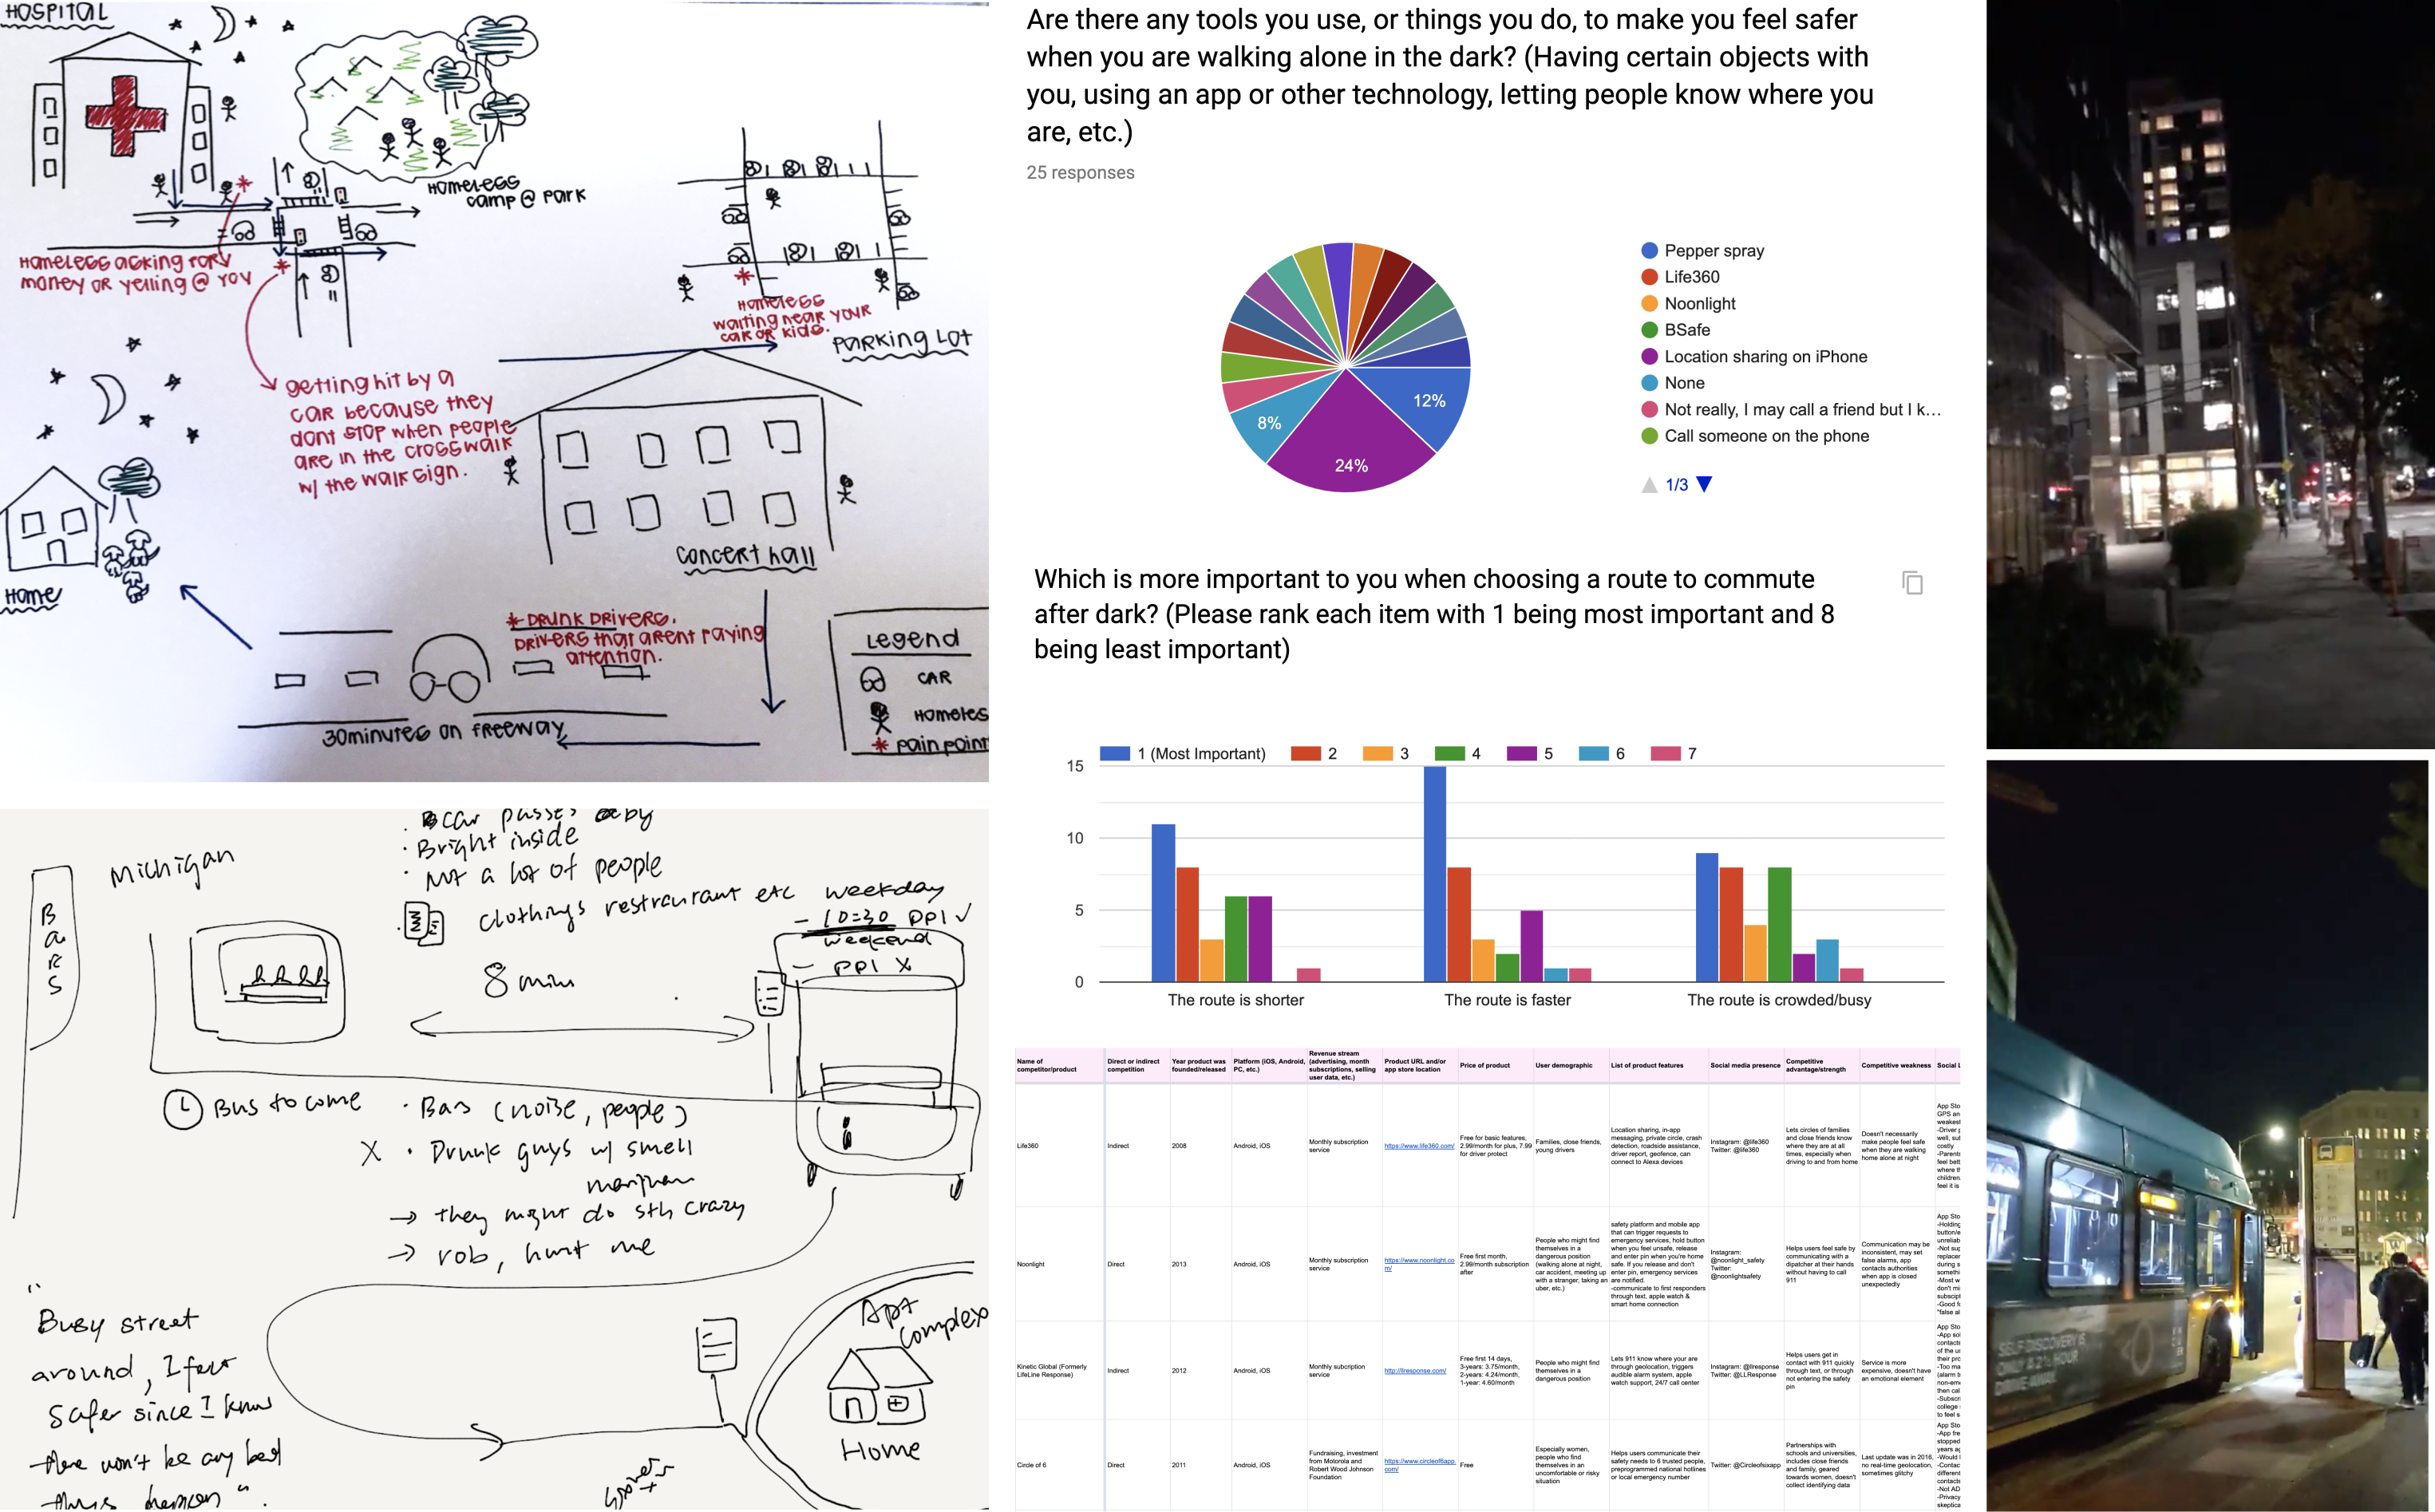 HOSPITAL
HOMELESS
CAMP @ PARK
HOMELESS ASKING FOR
MONEY OR YELLING @ YOU
HOMELESS
WAITING NEAR YOUR
CAR OR KIDS.
PARKING LOT
GETTING HIT BY A
CAR BECAUSE THEY
DONT STOP WHEN PEOPLE
ARE IN THE CROSSWALK
W/ THE WALK SIGN.
CONCERT HALL
HOME
* DRUNK DRIVERS,
DRIVERS THAT ARENT PAYING
ATTENTION.
30 MINUTES ON FREEWAY
LEGEND
CAR
HOMELES
* PAIN POINT
Michigan
BARS
. car passes by
. Bright inside
. Not a lot of people
. clothings restraurant etc
weekday
- 10=30 PPI ✓
weekend
- PPI X
8 min
Bus to come
. Bars (noise, people)
X . Drunk guys w/ smell
→ they might do sth crazy
→ rob, hurt me
"Busy street
around, I feel
safer since I know
there won't be any bad
things happen".
Apt
complex
Home
Are there any tools you use, or things you do, to make you feel safer
when you are walking alone in the dark? (Having certain objects with
you, using an app or other technology, letting people know where you
are, etc.)
25 responses
12%
8%
24%
Pepper spray
Life360
Noonlight
BSafe
Location sharing on iPhone
None
Not really, I may call a friend but I k...
Call someone on the phone
1/3
Which is more important to you when choosing a route to commute
after dark? (Please rank each item with 1 being most important and 8
being least important)
1 (Most Important) 2 3 4 5 6 7
15
10
5
0
The route is shorter
The route is faster
The route is crowded/busy
Name of
competitor/product
Direct or indirect
competition
Year product was
founded/released
Platform (iOS, Android,
PC, etc.)
Revenue stream
(advertising, month
subscriptions, selling
user data, etc.)
Product URL and/or
app store location
Price of product
User demographic
List of product features
Social media presence
Competitive
advantage/strength
Competitive weakness
Social L
Life360
Indirect
2008
Android, iOS
Monthly subscription
service
https://www.life360.com/
Free for basic features,
2.99/month for plus, 7.99
for driver protect
Families, close friends,
young drivers
Location sharing, in-app
messaging, private circle, crash
detection, roadside assistance,
driver report, geofence, can
connect to Alexa devices
Instagram: @life360
Twitter: @life360
Lets circles of families
and close friends know
where they are at all
times, especially when
driving to and from home
Doesn't necessarily
make people feel safe
when they are walking
home alone at night
App Sto
GPS an
weakest
-Driver p
well, sul
costly
-Parents
feel bett
where th
children.
feel it is
Noonlight
Direct
2013
Android, iOS
Monthly subscription
service
https://www.noonlight.co
m/
Free first month,
2.99/month subscription
after
People who might find
themselves in a
dangerous position
(walking alone at night,
car accident, meeting up
with a stranger, taking an
uber, etc.)
safety platform and mobile app
that can trigger requests to
emergency services, hold button
when you feel unsafe, release
and enter pin when you're home
safe. If you release and don't
enter pin, emergency services
are notified.
-communicate to first responders
through text, apple watch &
smart home connection
Instagram:
@noonlight_safety
Twitter:
@noonlightsafety
Helps users feel safe by
communicating with a
dipatcher at their hands
without having to call
911
Communication may be
inconsistent, may set
false alarms, app
contacts authorities
when app is closed
unexpectedly
App Sto
-Holding
button/e
unreliab
-Not sup
replacer
during s
somethi
-Most w
don't mi
subscipt
-Good fo
"false al
Kinetic Global (Formerly
LifeLine Response)
Indirect
2012
Android, iOS
Monthly subcription
service
http://llresponse.com/
Free first 14 days,
3-years: 3.75/month,
2-years: 4.24/month,
1-year: 4.60/month
People who might find
themselves in a
dangerous position
Lets 911 know where your are
through geolocation, triggers
audible alarm system, apple
watch support, 24/7 call center
Instagram: @llresponse
Twitter: @LLResponse
Helps users get in
contact with 911 quickly
through text, or through
not entering the safety
pin
Service is more
expensive, doesn't have
an emotional element
App Sto
-App sol
contacts
of the us
their pro
-Too ma
(alarm t
non-em
then cal
-Subscri
college
to feel s
Circle of 6
Direct
2011
Android, iOS
Fundraising, investment
from Motorola and
Robert Wood Johnson
Foundation
https://www.circleof6app.
com/
Free
Especially women,
people who find
themselves in an
uncomfortable or risky
situation
Helps users communicate their
safety needs to 6 trusted people,
preprogrammed national hotlines
or local emergency number
Twitter: @Circleofsixapp
Partnerships with
schools and universities,
includes close friends
and family, geared
towards women, doesn't
collect identifying data
Last update was in 2016,
no real-time geolocation,
sometimes glitchy
App Sto
-App fre
stopped
years ag
-Would l
-Contac
different
contacts
-Not AD
-Privacy
skeptica
SELF-DISCOVERY IS